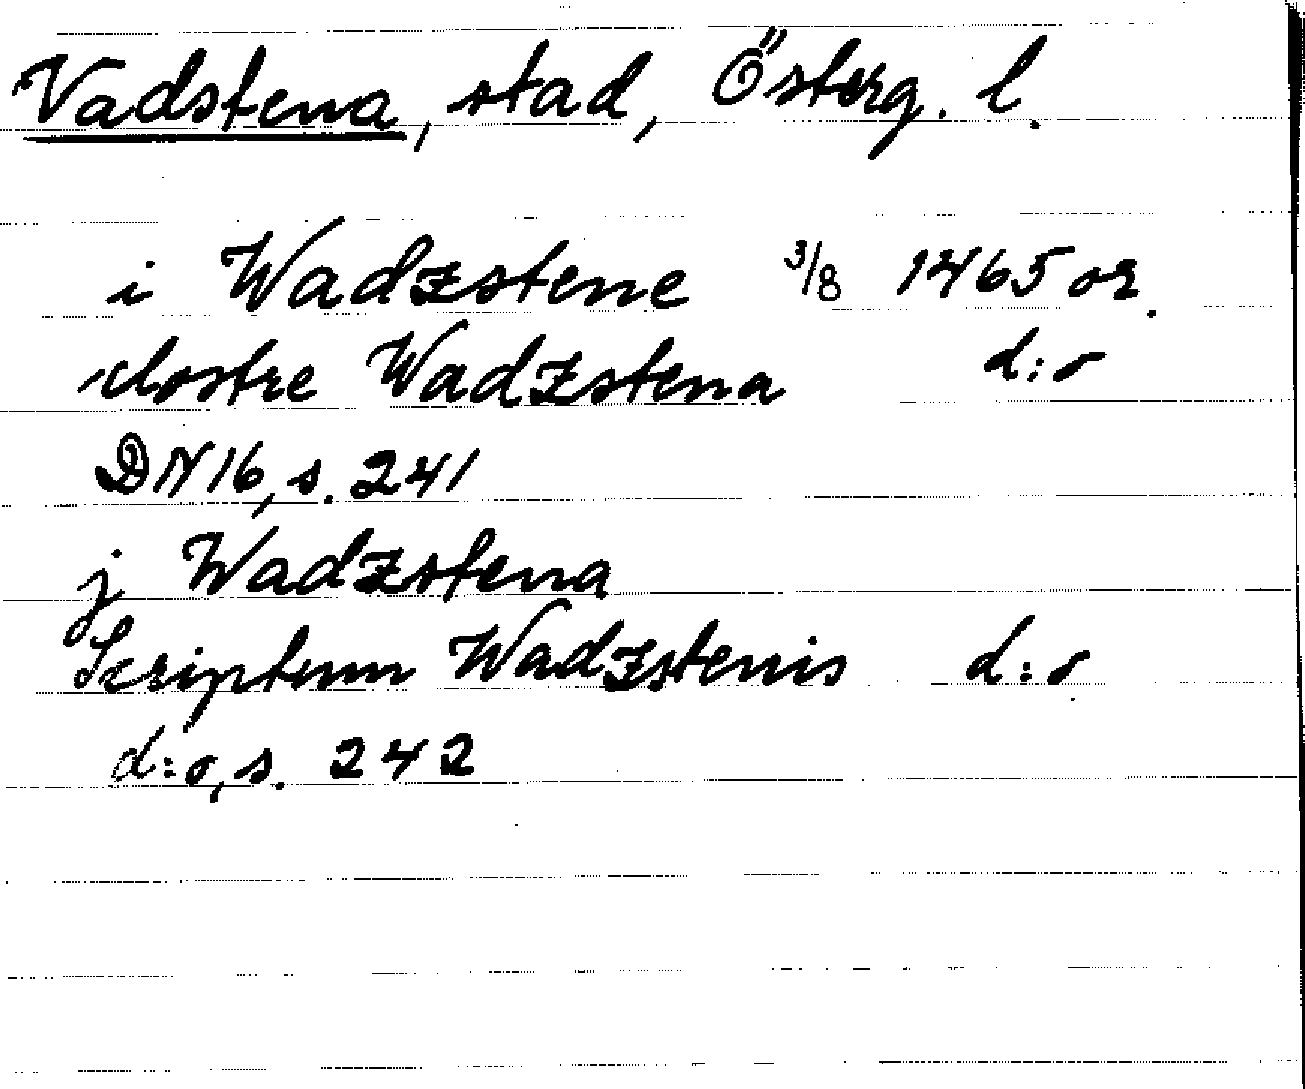 Vadstena, stad, Österg. l.
i Wadzstene 3/8 1465 or.
clostre Wadzstena d:o
DN 16, s. 241
j Wadzstena
Scriptum Wadzstenis d:o
d:o, s. 242